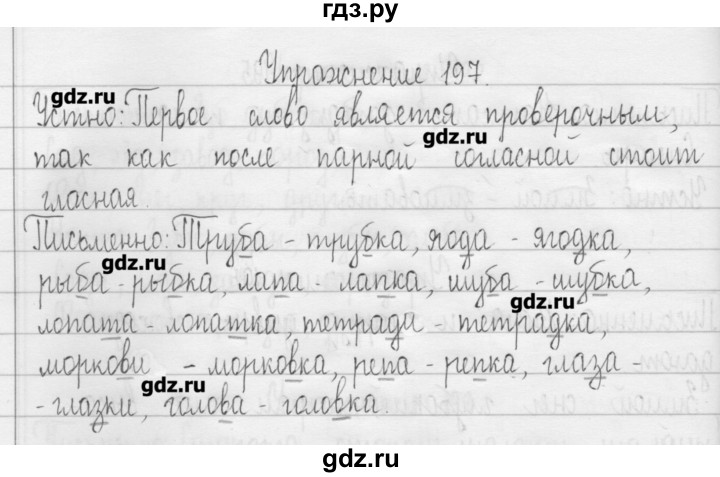 гдз.ру
Упражнение 197.
gdz.ru
Устно: Первое слово является проверочным,
gdz.ru
так как после парной согласной стоит
гласная.
Письменно: Труба - трубка, ягода - ягодка,
gdz.ru
рыба - рыбка, лапа - лапка, шуба - шубка,
gdz.ru
лопата - лопатка, тетради - тетрадка,
моркови - морковка, репа - репка, глаза -
gdz.ru
- глазки, голова - головка.
gdz.ru